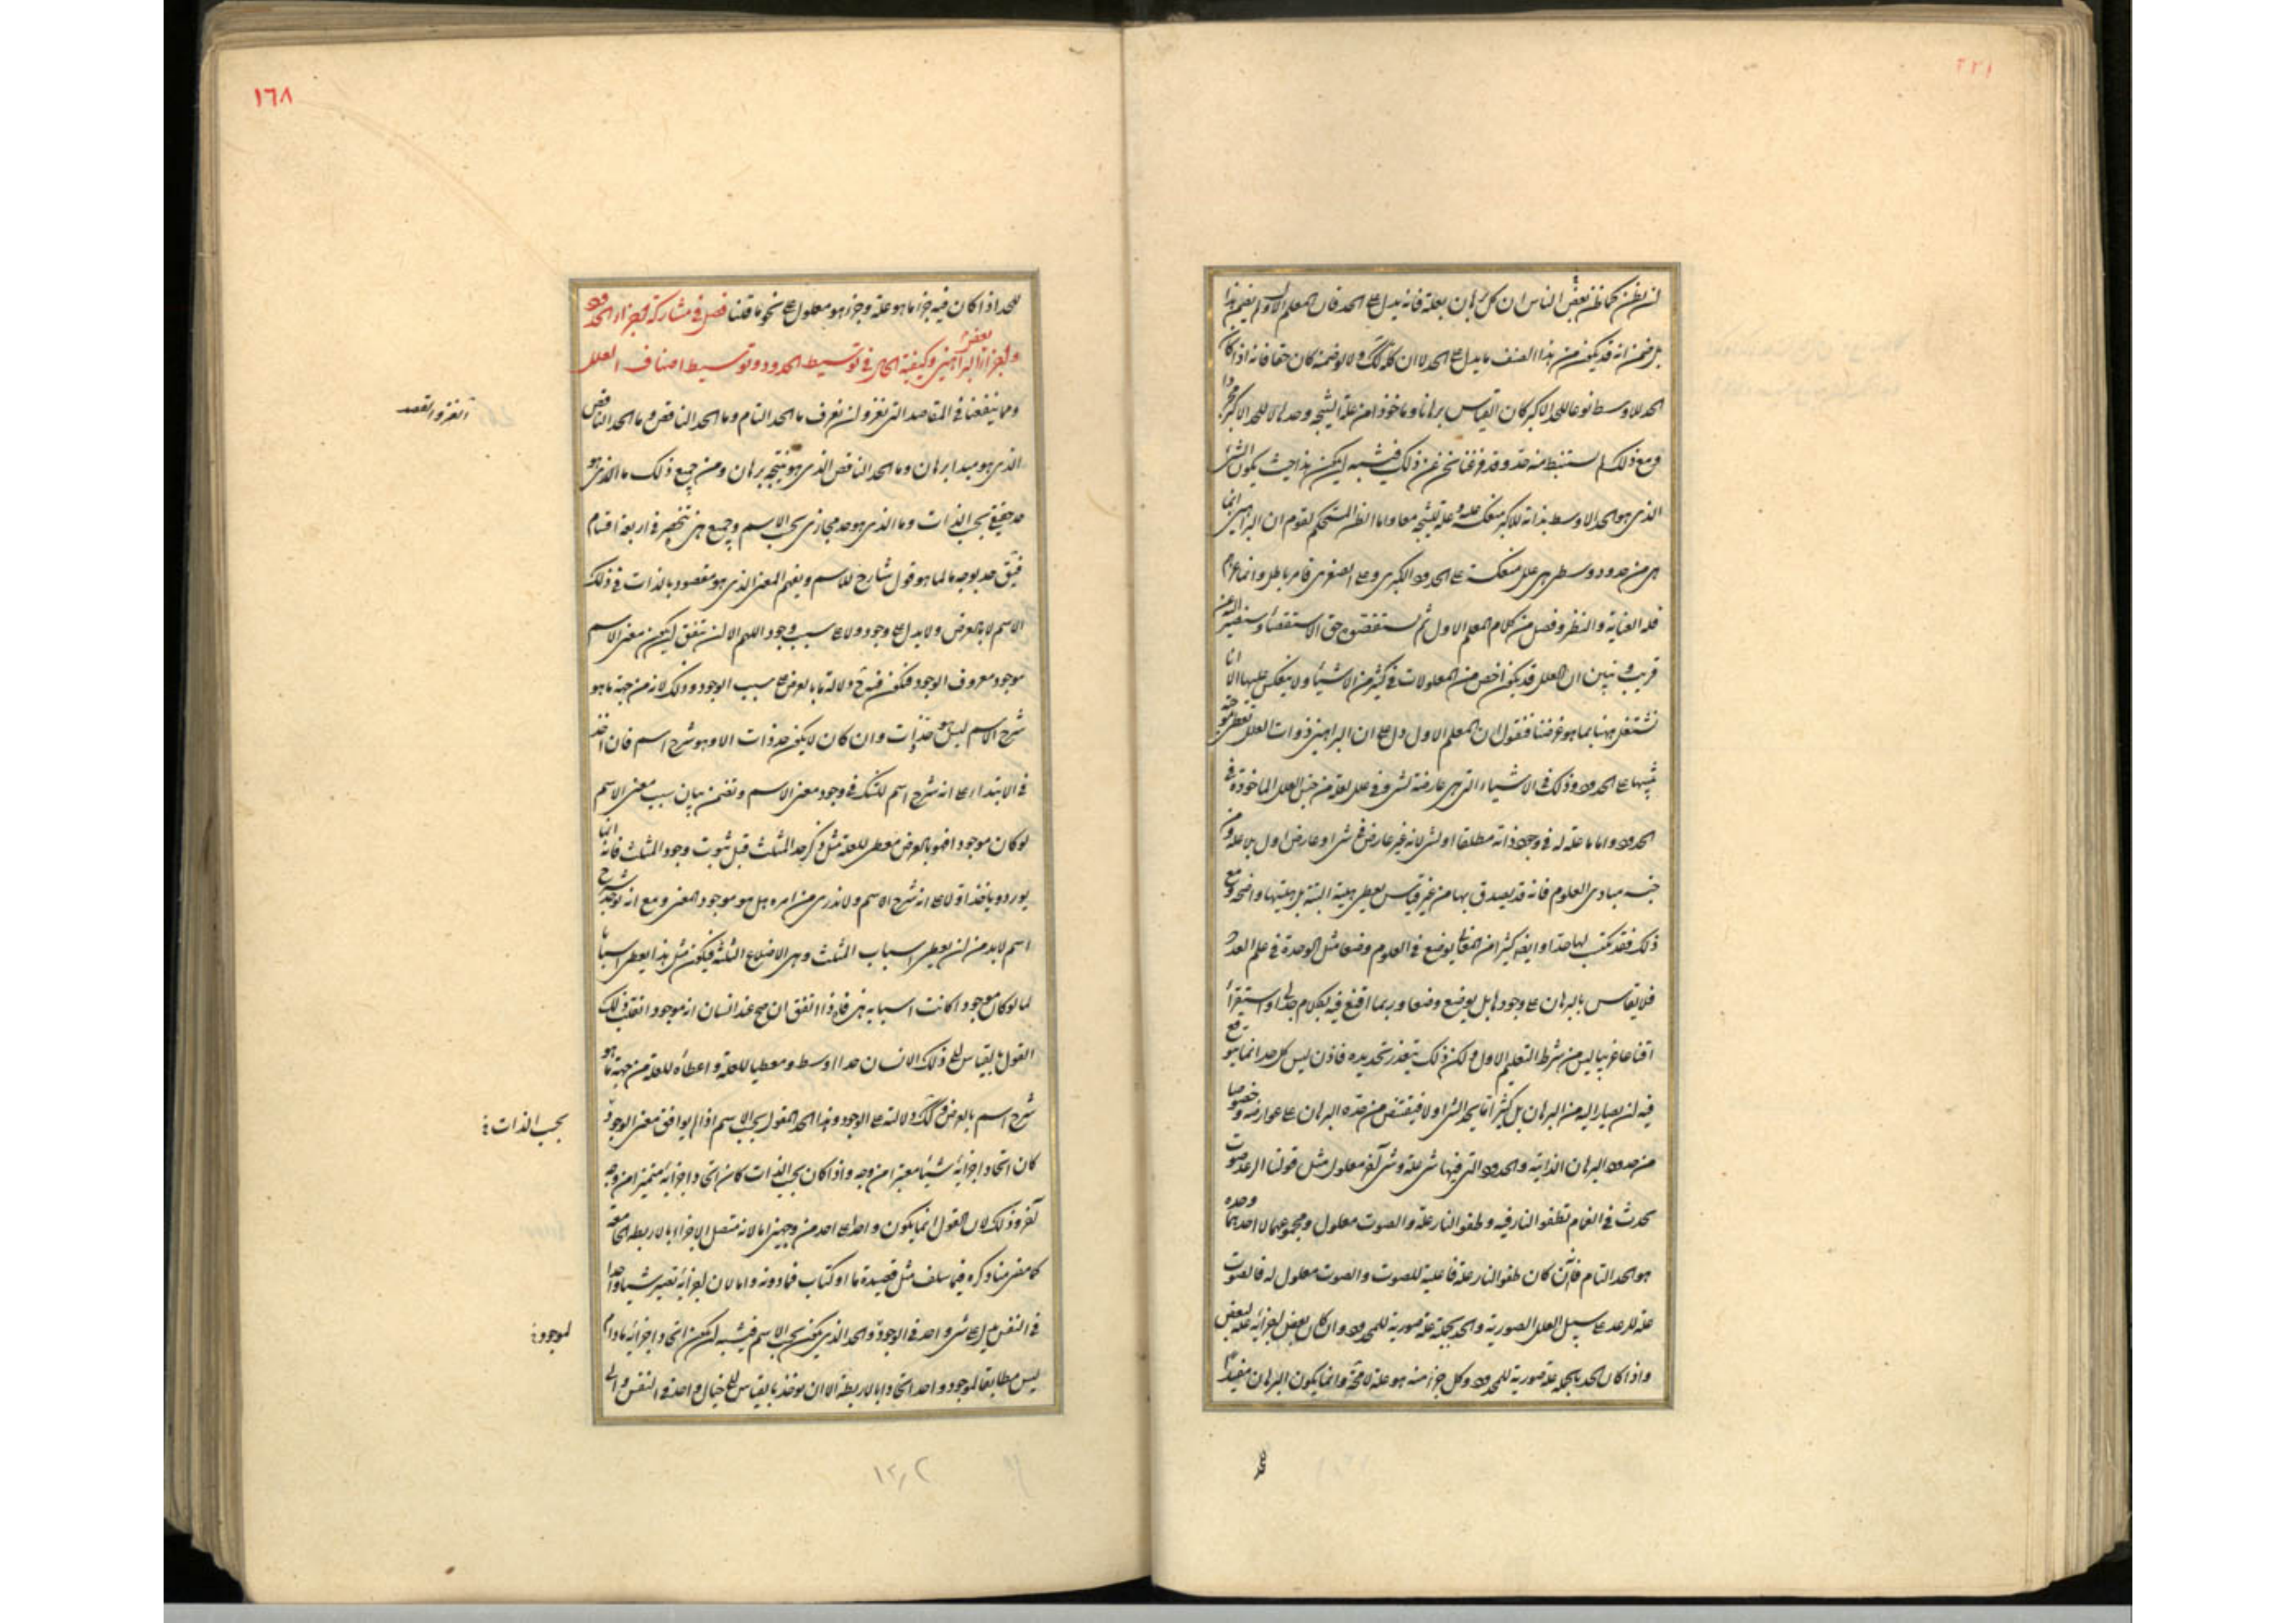 لن يظن كما ظن بعض الناس ان كل برهان بعلة فانه يدل على الحد فان المعلم الاول لم يضمن هذا
بل ضمن انه قد يكون من هذا الصنف ما يدل على الحد لا ان كله كذلك ولا لو ضمنه كان حقا فانه اذا كان
الحد الاوسط نوعا للحد الاكبر كان القياس برهانا وماخوذا من علة النتيجة وحدها لا للحد الاكبر
ومع ذلك لم يستنبط منه حد وقد فرغنا نحن عن ذلك فيشبه ان يكون هذا حيث يكون الشئ
الذى هو الحد الاوسط بذاته للاكبر منعكسا عليه وعلة للنتيجة معا واما الظن المستحكم لقوم ان البراهين انما
هى من حدود وسطى هى علل منعكسة على الحدود الكبرى وعلى الصغرى فامر باطل وانما غرهم
قلة العناية والنظر وفصل من كلام المعلم الاول ثم يستقصوه حق الاستقصاء وسنصير اليه عن
قريب ونبين ان العلل قد يكون اخص من المعلولات فى كثير من الاشياء ولا ينعكس عليها الا انا
نشتغل ههنا بما هو غرضنا فنقول ان المعلم الاول دل على ان البراهين ذوات العلل تعطى من جهة
ينبهها على الحدود وذلك فى الاشياء التى هى عارضة لشئ وفى علل لعلة من خبل العلل الماخوذة فى
الحدود واما ما علة له فى وجود ذاته مطلقا او لشئ لانه غير عارض فى شئ او عارض اول بلا علة ومن
جنسه مبادى العلوم فانه قد يصدق بها من غير قياس يعطى هلية البتة بل هليتها واضحة ومع
ذلك فقد نكتسب لها حدا وايضا كثيرا من المعانى يوضع فى العلوم وضعا مثل الوحدة فى علم العدد
فلا يقاس بالبرهان على وجودها بل يوضع وضعا وربما اقنع فيه بكلام جدلى او استقراء
اقناعا غريبا ليس من شرط التعليم الاول ولكن ذلك يتعذر تحديده فاذن ليس كل حد انما هو يتوقع
فيه ان يصار اليه من البرهان بل كثيرا ما يحد الشئ اولا فيقتنص من حده البرهان على عوارضه وخصوصا
من حدود البرهان الذاتية والحدود التى فيها شئ علة وشئ آخر معلول مثل قولنا الرعد صوت
يحدث فى الغمام لطفو النار فيه وطفو النار علة والصوت معلول ومجموعهما لا احدهما وحده
هو الحد التام فان كان طفو النار علة فاعلية للصوت والصوت معلول له فالصوت
علة للرعد على سبيل العلل الصورية والحد بجملته علة صورية للمحدود وان كان بعض اجزائه علة لبعض
واذا كان الحد بجملته علة صورية للمحدود وكل جزء منه هو علة لامحة وانما يكون البرهان مفيدا
١٦٨
للحد اذا كان فيه جزء ما هو علة وجزء هو معلول على نحو ما قلنا فصل فى مشاركة اجزاء الحد
وبعض اجزاء البراهين وكيفية الحال فى توسيط الحدود وتوسيط اصناف العلل
ومما ينفعنا فى المقاصد التى نغزو ان نعرف ما الحد التام وما الحد الناقص وما الحد الناقص
الذى هو مبدا برهان وما الحد الناقص الذى هو نتيجة برهان ومن جميع ذلك ما الذى هو
حد حقيقى بحسب الذات وما الذى هو حد مجازى بحسب الاسم وجميع هذه تنحصر فى اربعة اقسام
فيق حد بوجه ما لما هو قول شارح للاسم ويفهم المعنى الذى هو مقصود بالذات فى ذلك
الاسم لا بالعرض ولا يدل على وجود ولا على سبب وجود اللهم الا ان يتفق ان يكون معنى الاسم
موجودا معروف الوجود فيكون فيه ح دلالة ما بالعرض على سبب الوجود وذلك لانه من جهة ما هو
شرح الاسم ليس هو حد ذات وان كان لا يكون حد ذات الا وهو شرح اسم فان اخذ
فى الابتداء على انه شرح اسم للشك فى وجود معنى الاسم وتضمن بيان سبب معنى الاسم
لو كان موجودا فهو بالعرض معطى للعلة مثل ذكر حد المثلث قبل ثبوت وجود المثلث فانه انما
يورد وياخذ اولا على انه شرح الاسم ولا ندرى من امره هل هو موجود المعنى ومع انه يوخذ شرح
اسم لا بد من ان يعطى اسباب المثلث وهى الاضلاع الثلثة فيكون مثل هذا يعطى اسبابا
لما لو كان موجودا كانت اسبابه هى فاذا اتفق ان صح عند انسان انه موجود انقلب ذلك
القول بالقياس الى ذلك الانسان حدا اوسط ومعطيا للعلة واعطاه للعلة من جهة ما هو
شرح اسم بالعرض وكذلك دلالته على الوجود وهذا الحد المقول بحسب الاسم اذا لم يوافق معنى الوجود
كان اتحاد اجزائه شيئا معتبرا من وجه واذا كان بحسب الذات كان اتحاد اجزائه متميزا من وجه
آخر وذلك لان القول انما يكون واحدا على احد من وجهين اما لانه متصل الاجزاء بالاربطة الجامعة
كما مضى منا ذكره فيما سلف مثل قصيدة ما او كتاب فما دونه واما لان اجزائه تصير شيئا واحدا
فى النفس يدل على شئ واحد فى الوجود والحد الذى يكون بحسب الاسم فيشبه ان يكون اتحاد اجزائه ما دام
ليس مطابقا لموجود واحد اتحادا بالاربطة الا ان يوخذ بالقياس الى خيال واحد فى النفس والى
بحسب الذات
لموجود